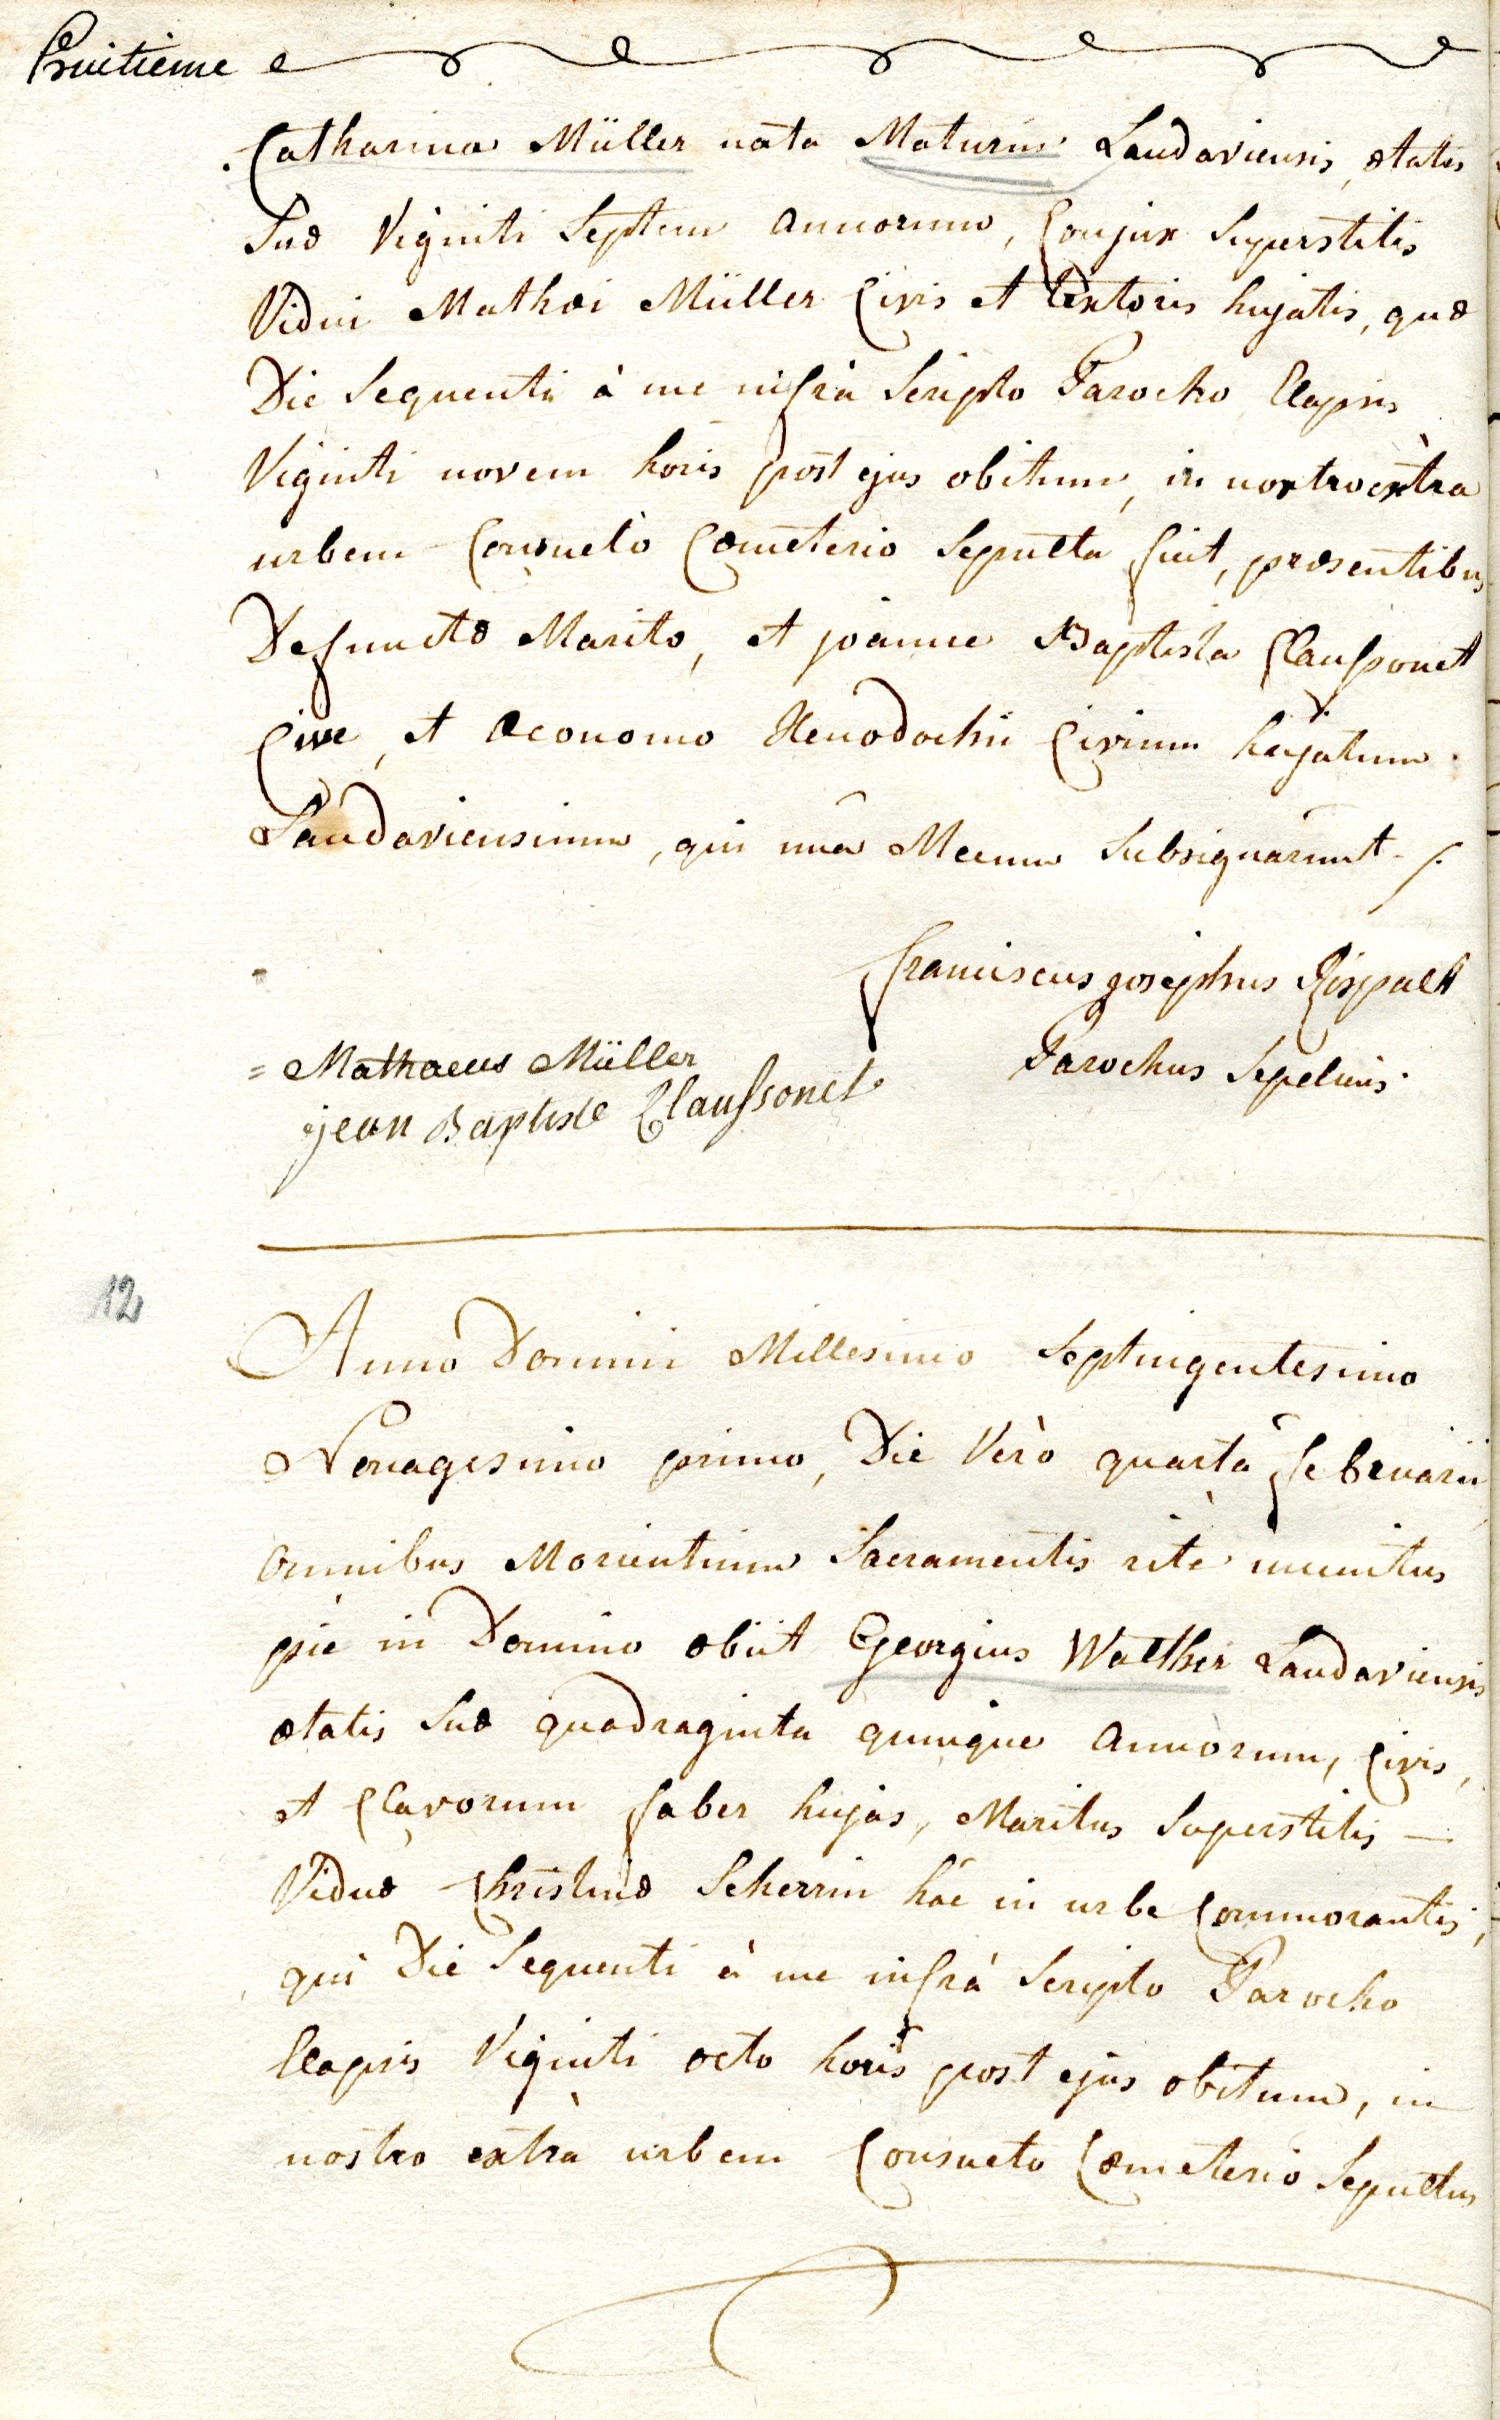 huitieme
Catharina Müller nata Maturin Landaviensis, ætatis
Suæ Viginti Septem annorum, Conjux Superstitis
Vidui Mathæi Müller Civis et textoris hujatis, quæ
Die Sequenti à me infrà Scripto Parocho Elapsis
Viginti novem horis post ejus obitum, in nostro extra
urbem Consuetò Cœmeterio Sepulta fuit, præsentibus
Defunctæ Marito, et joanne Baptista Claussonet
Cive, et Œconomo Xenodochii Civium hujatum
Landaviensium, qui unà Mecum Subsignarunt ./.
franciscus josephus
Parochus Sepeliens.
= Mathaeus Müller
jean Baptiste Claussonet
12
Anno Domini Millesimo Septingentesimo
Nonagesimo primo, Die Verò quarta februarii
omnibus Morientium Sacramentis ritè munitus
piè in Domino obiit Georgius Walther Landaviensis
ætatis Suæ quadraginta quinque annorum, Civis,
et Clavorum faber hujas, Maritus Superstitis —
Viduæ Christinæ Scherrin hâc in urbe Commorantis,
qui Die Sequenti à me infrà Scripto Parocho
Elapsis Viginti octo horis post ejus obitum, in
nostro extrà urbem Consueto Cœmeterio Sepultus